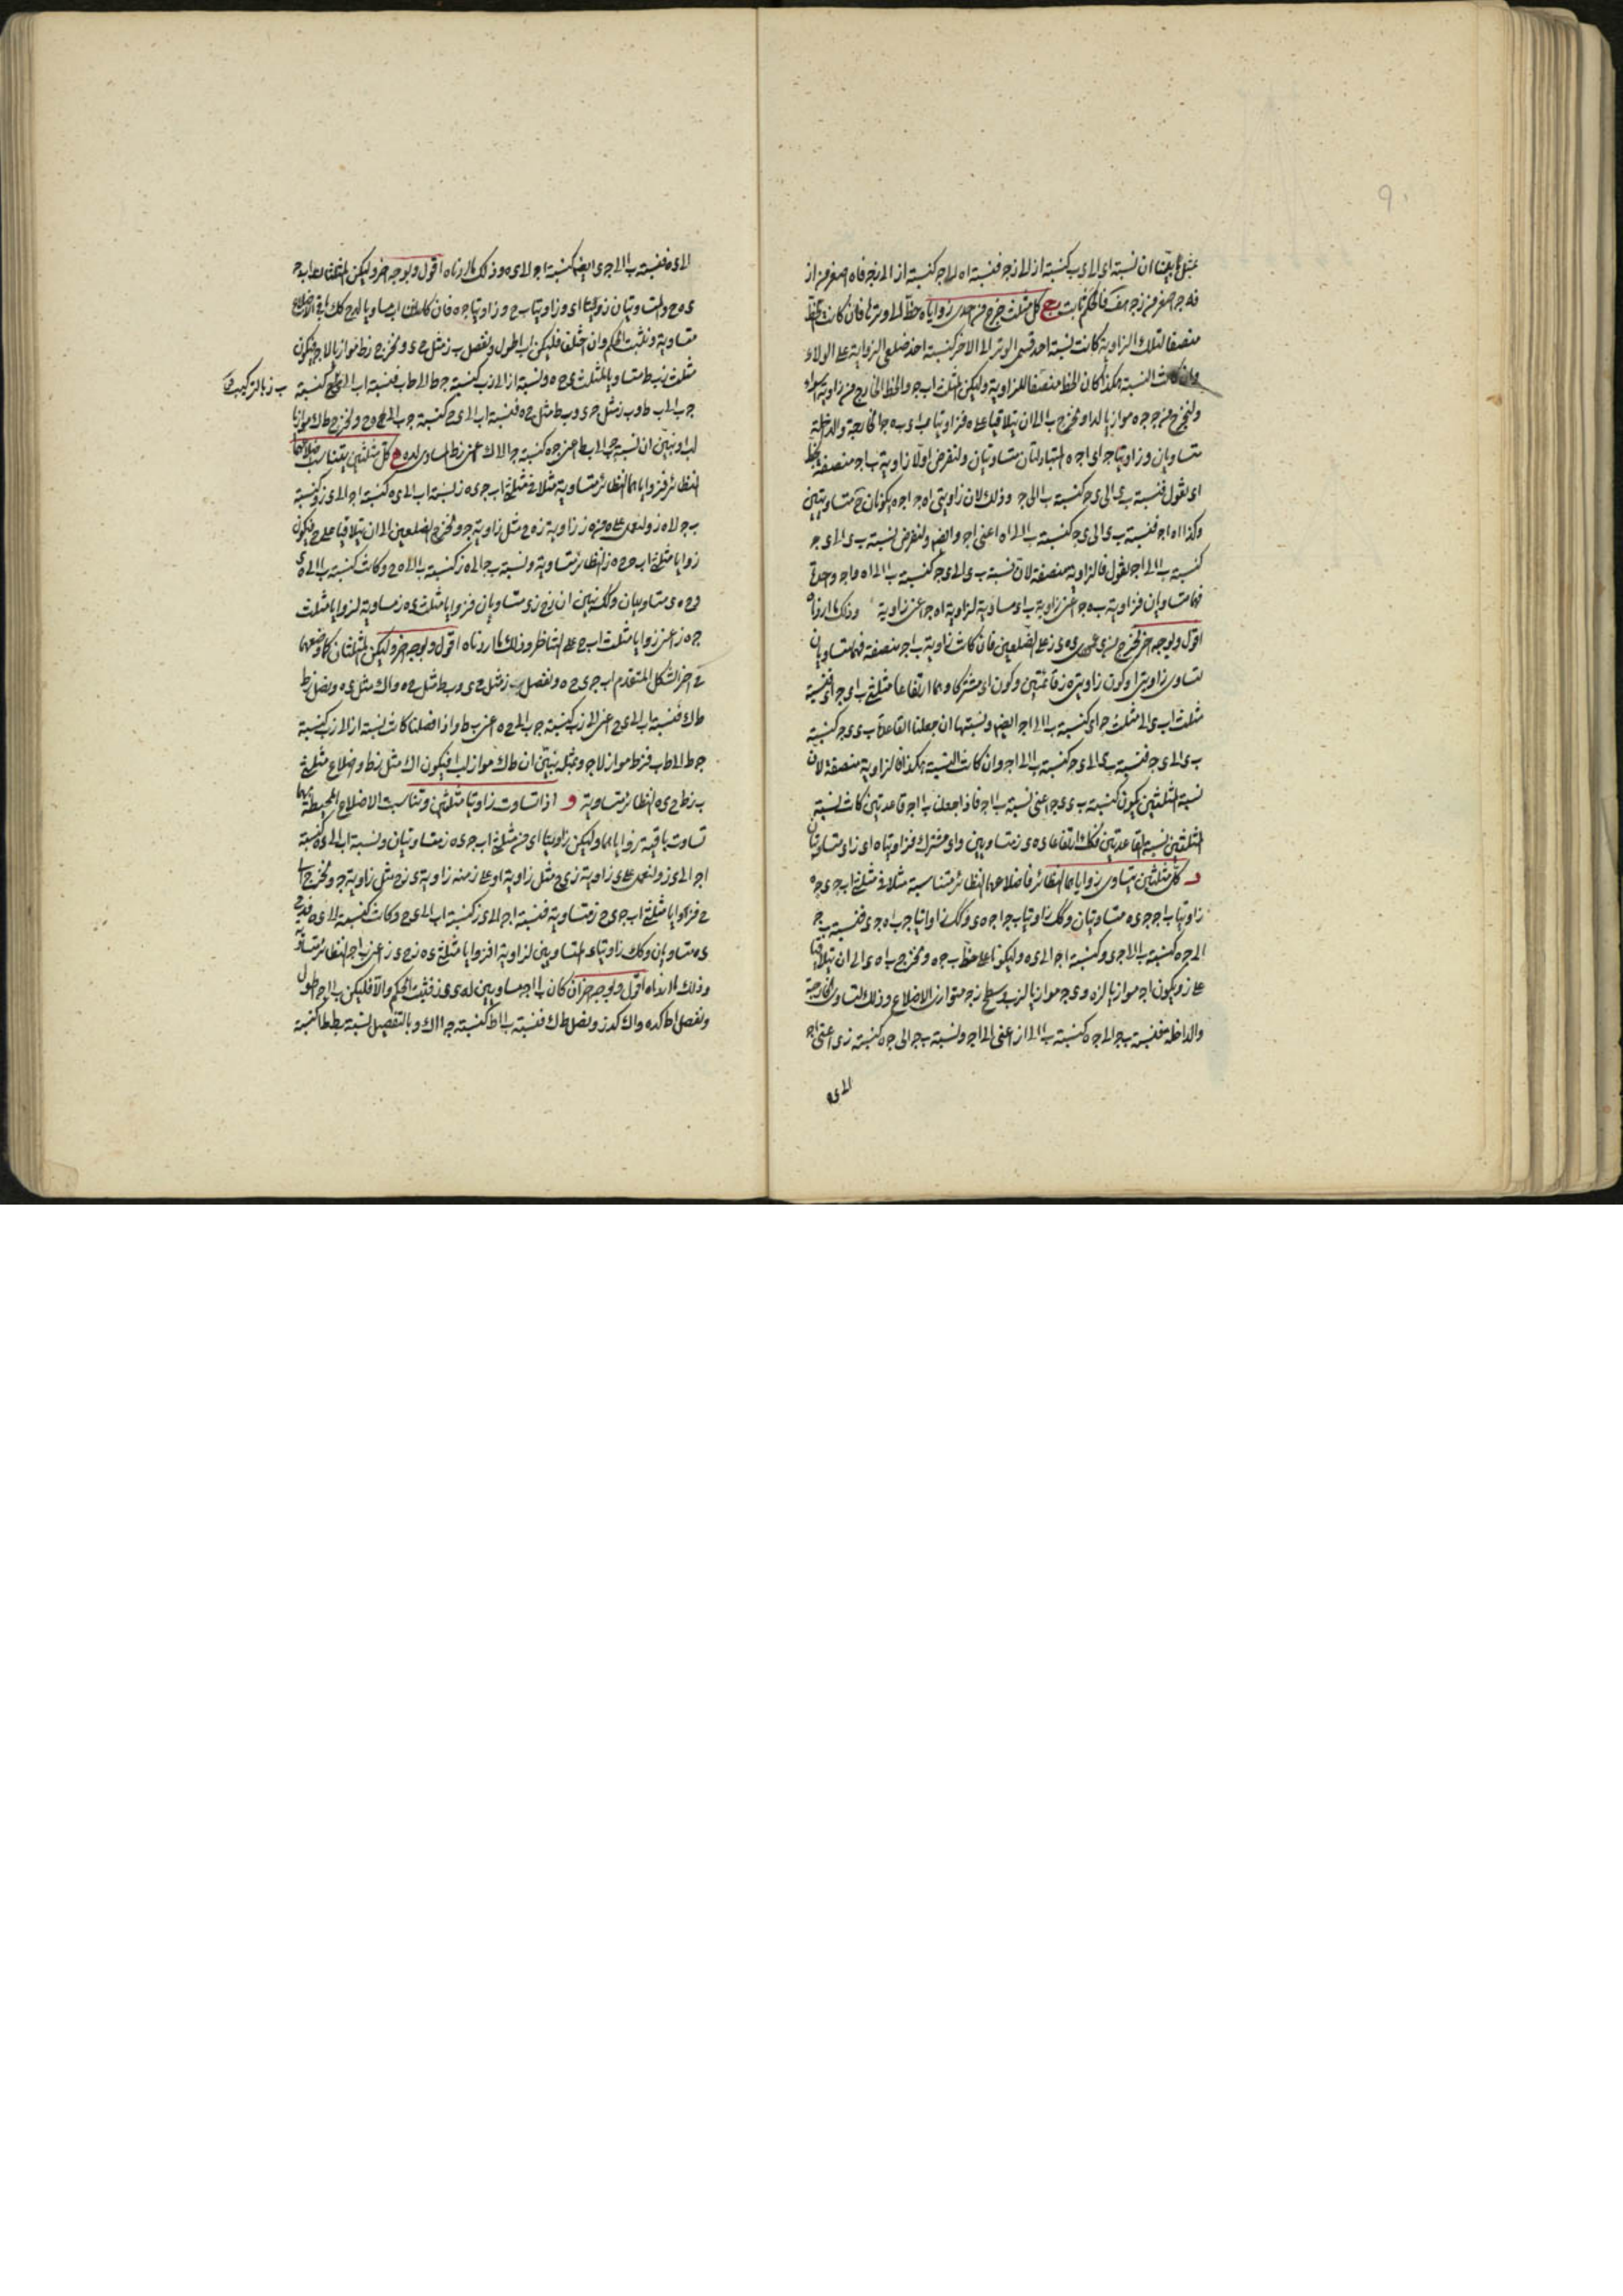 بمثل ما بينا ان نسبة اى الى ى ب كنسبة از الى زجـ فنسبة اه الى اجـ كنسبة از الى زجـ فاه اصغر من از
فه جـ اصغر من زجـ هف فالحكم ثابت ج كل مثلث خرج من احدى زواياه خط الى وترها فان كانت الخط
منصفا لتلك الزاوية كانت نسبة احد قسمى الوتر الى الاخر كنسبة احد ضلعى الزواية على الولاء
وان كانت النسبة هكذا كان الخط منصفا للزاوية وليكن المثلث اب جـ والخط الخارج من زاوية
ولنخرج من جـ جـ ه موازيا لدا ونخرج ب ا الى ان يتلاقيا على ه فزاويتا ب ا ى ب ه جـ الخارجة والداخلة
متساويان وزاويتا جـ اى اجـ ه المتبادلتان متساويتان ولنفرض اولا زاوية ب اجـ منصفة بخط
اى نقول فنسبة ب ى الى ى جـ كنسبة ب ا الى اجـ وذلك لان زاويتى اه جـ اجـ ه يكونان ح متساويتين
وكذا اه اجـ فنسبة ب ى الى ى جـ كنسبة ب ا الى اه اعنى اجـ وايضا ولنفرض نسبة ب ى الى ى جـ
كنسبة ب ا الى اجـ نقول فالزاوية منصفة لان نسبة ب ى الى ى جـ كنسبة ب ا الى اه واجـ واحدة
فهما متساويان فزاوية ب ه جـ اعنى زاوية ب اى مساوية لزاوية اه جـ اعنى زاوية وذلك ما اردناه
اقول وبوجه اخر نخرج من ى عمودى ى ه ى ز على الضلعين فان كانت زاوية ب اجـ منصفة فهما متساويان
لتساوى زاويتى ا وكون زاويتى ه ز قائمتين وكون اى مشتركا وهما ارتفاعا مثلثى ب اى جـ اى فنسبة
مثلث اب ى الى مثلث جـ اى كنسبة ب ا الى اجـ ايضا ونسبتها ان جعلنا القاعدة ب ى ى جـ كنسبة
ب ى الى ى جـ فنسبة ب ى الى ى جـ كنسبة ب ا الى اجـ وان كانت النسبة هكذا فالزاوية منصفة لان
نسبة المثلثين يكون كنسبة ب ى ى جـ اعنى نسبة ب ا اجـ فاذا جعلنا ب ا اجـ قاعدتين كانت نسبة
المثلثين نسبة القاعدتين فكان ارتفاعا ى ه ى ز متساويين واى مشترك فزاويتا ه اى ز اى متساويتان
د كل مثلثين يتساوى زواياهما النظائر فاضلاعهما النظائر متناسبة مثلا فى مثلثى اب جـ ى جـ ه
زاويتا ب اجـ جـ ى ه متساويتان وكذلك زاويتا ب جـ ا جـ ه ى وكذلك زاويتا جـ ب ا ه جـ ى فنسبة ب جـ
الى جـ ه كنسبة ب ا الى جـ ى وكنسبة اجـ الى ى ه وليكونا على خط ب جـ ه ونخرج ب ا ه ى الى ان يتلاقيا
على ز ويكون اجـ موازيا لزه وى جـ موازيا لزب وسطح زجـ متوازى الاضلاع وذلك لتساوى الخارجة
والداخلة فنسبة ب جـ الى جـ ه كنسبة ب ا الى از اعنى الى اجـ ونسبة ب جـ الى جـ ه كنسبة زى اعنى اجـ
الى ى ه
الى ى ه فنسبة ب ا الى جـ ى ايضا كنسبة اجـ الى ى ه وذلك ما اردناه اقول وبوجه اخر وليكن المثلثان اب جـ
ى ه ح والمتساويتان زاويتا ا ى وزاويتا ب ح وزاويتا جـ ه فان كان اب مساويا لى ح كان باقى الاضلاع
متساوية وثبت الحكم وان اختلف فليكن اب اطول ونفصل ب ز مثل ح ى ونخرج زط موازيا لاجـ فيكون
مثلث زب ط مساويا لمثلث ى ح ه ونسبة از الى زب كنسبة جـ ط الى ط ب فنسبة اب الى كنسبة ب ز بالتركيب
جـ ب الى ب ط وب ز مثل ح ى وب ط مثل ح ه فنسبة اب الى ى ح كنسبة جـ ب الى ح ه ونخرج ط ك موازيا
لب ا ونبين ان نسبة جـ ب الى ب ط اعنى ح ه كنسبة جـ ا الى ا ك اعنى زط المساوى لى ه ه كل مثلثين يتناسب اضلاعهما
النظائر فزواياهما النظائر متساوية مثلا فى مثلثى اب جـ ى ه ز نسبة اب الى ى ه كنسبة اجـ الى ى ز وكنسبة
ب جـ الى ه ز ولنعمل على ه من ه ز زاوية زه ح مثل زاوية ب وعلى ز مثل زاوية جـ ونخرج الضلعين الى ان يتلاقيا على ح فيكون
زوايا مثلثى اب جـ ح ه ز النظائر متساوية ونسبة ب جـ الى ه ز كنسبة ب ا الى ه ح وكانت كنسبة ب ا الى ه ى
فه ح ه ى متساويان وكذلك نبين ان زح زى متساويان فزوايا مثلث ى ه ز مساوية لزوايا مثلث
ح ه ز اعنى زوايا مثلث اب جـ على التناظر وذلك ما اردناه اقول وبوجه اخر وليكن المثلثان كما وضعهما
فى اخر الشكل المتقدم اب جـ ى ح ه ونفصل ب ز مثل ح ى وب ط مثل ح ه واك مثل ى ه ونصل زط
ط ك فنسبة اب الى ى ح اعنى الى زب كنسبة جـ ب الى ح ه اعنى ب ط واذا فصلنا كانت نسبة از الى زب كنسبة
جـ ط الى ط ب فزط مواز لاجـ وبمثله نبين ان ط ك مواز لب ا فيكون اك مثل زط واضلاع مثلثى
ب زط ح ى ه النظائر متساوية و اذا تساوت زاويتا مثلثين وتناسبت الاضلاع المحيطة بهما
تساوت باقية زواياهما وليكن زاويتا ا ى من مثلثى اب جـ ى ه ز متساويتان ونسبة اب الى ى ه كنسبة
اجـ الى ى ز ولنعمل على ى زاوية زى ح مثل زاوية ا وعلى ز منه زاوية ى زح مثل زاوية جـ ونخرجهما الى
ح فزوايا مثلثى اب جـ ى ح ز متساوية فنسبة اجـ الى ى ز كنسبة اب الى ى ح وكانت كنسبة الى ى ه فى ح
ى ه متساويان وكذلك زاويتا ى المتساويتين لزاوية ا فزوايا مثلثى ى ه ز ح ى ز اعنى ب اجـ النظائر متساوية
وذلك ما اردناه اقول وبوجه اخر ان كان ب ا اجـ مساويين له ى ى ز فثبت الحكم والا فليكن ب ا اجـ اطول
ونفصل اط كى ه واك كى ز ونصل ط ك فنسبة ب ا اط كنسبة جـ ا اك وبالتفصيل نسبة ب ط ط ا كنسبة